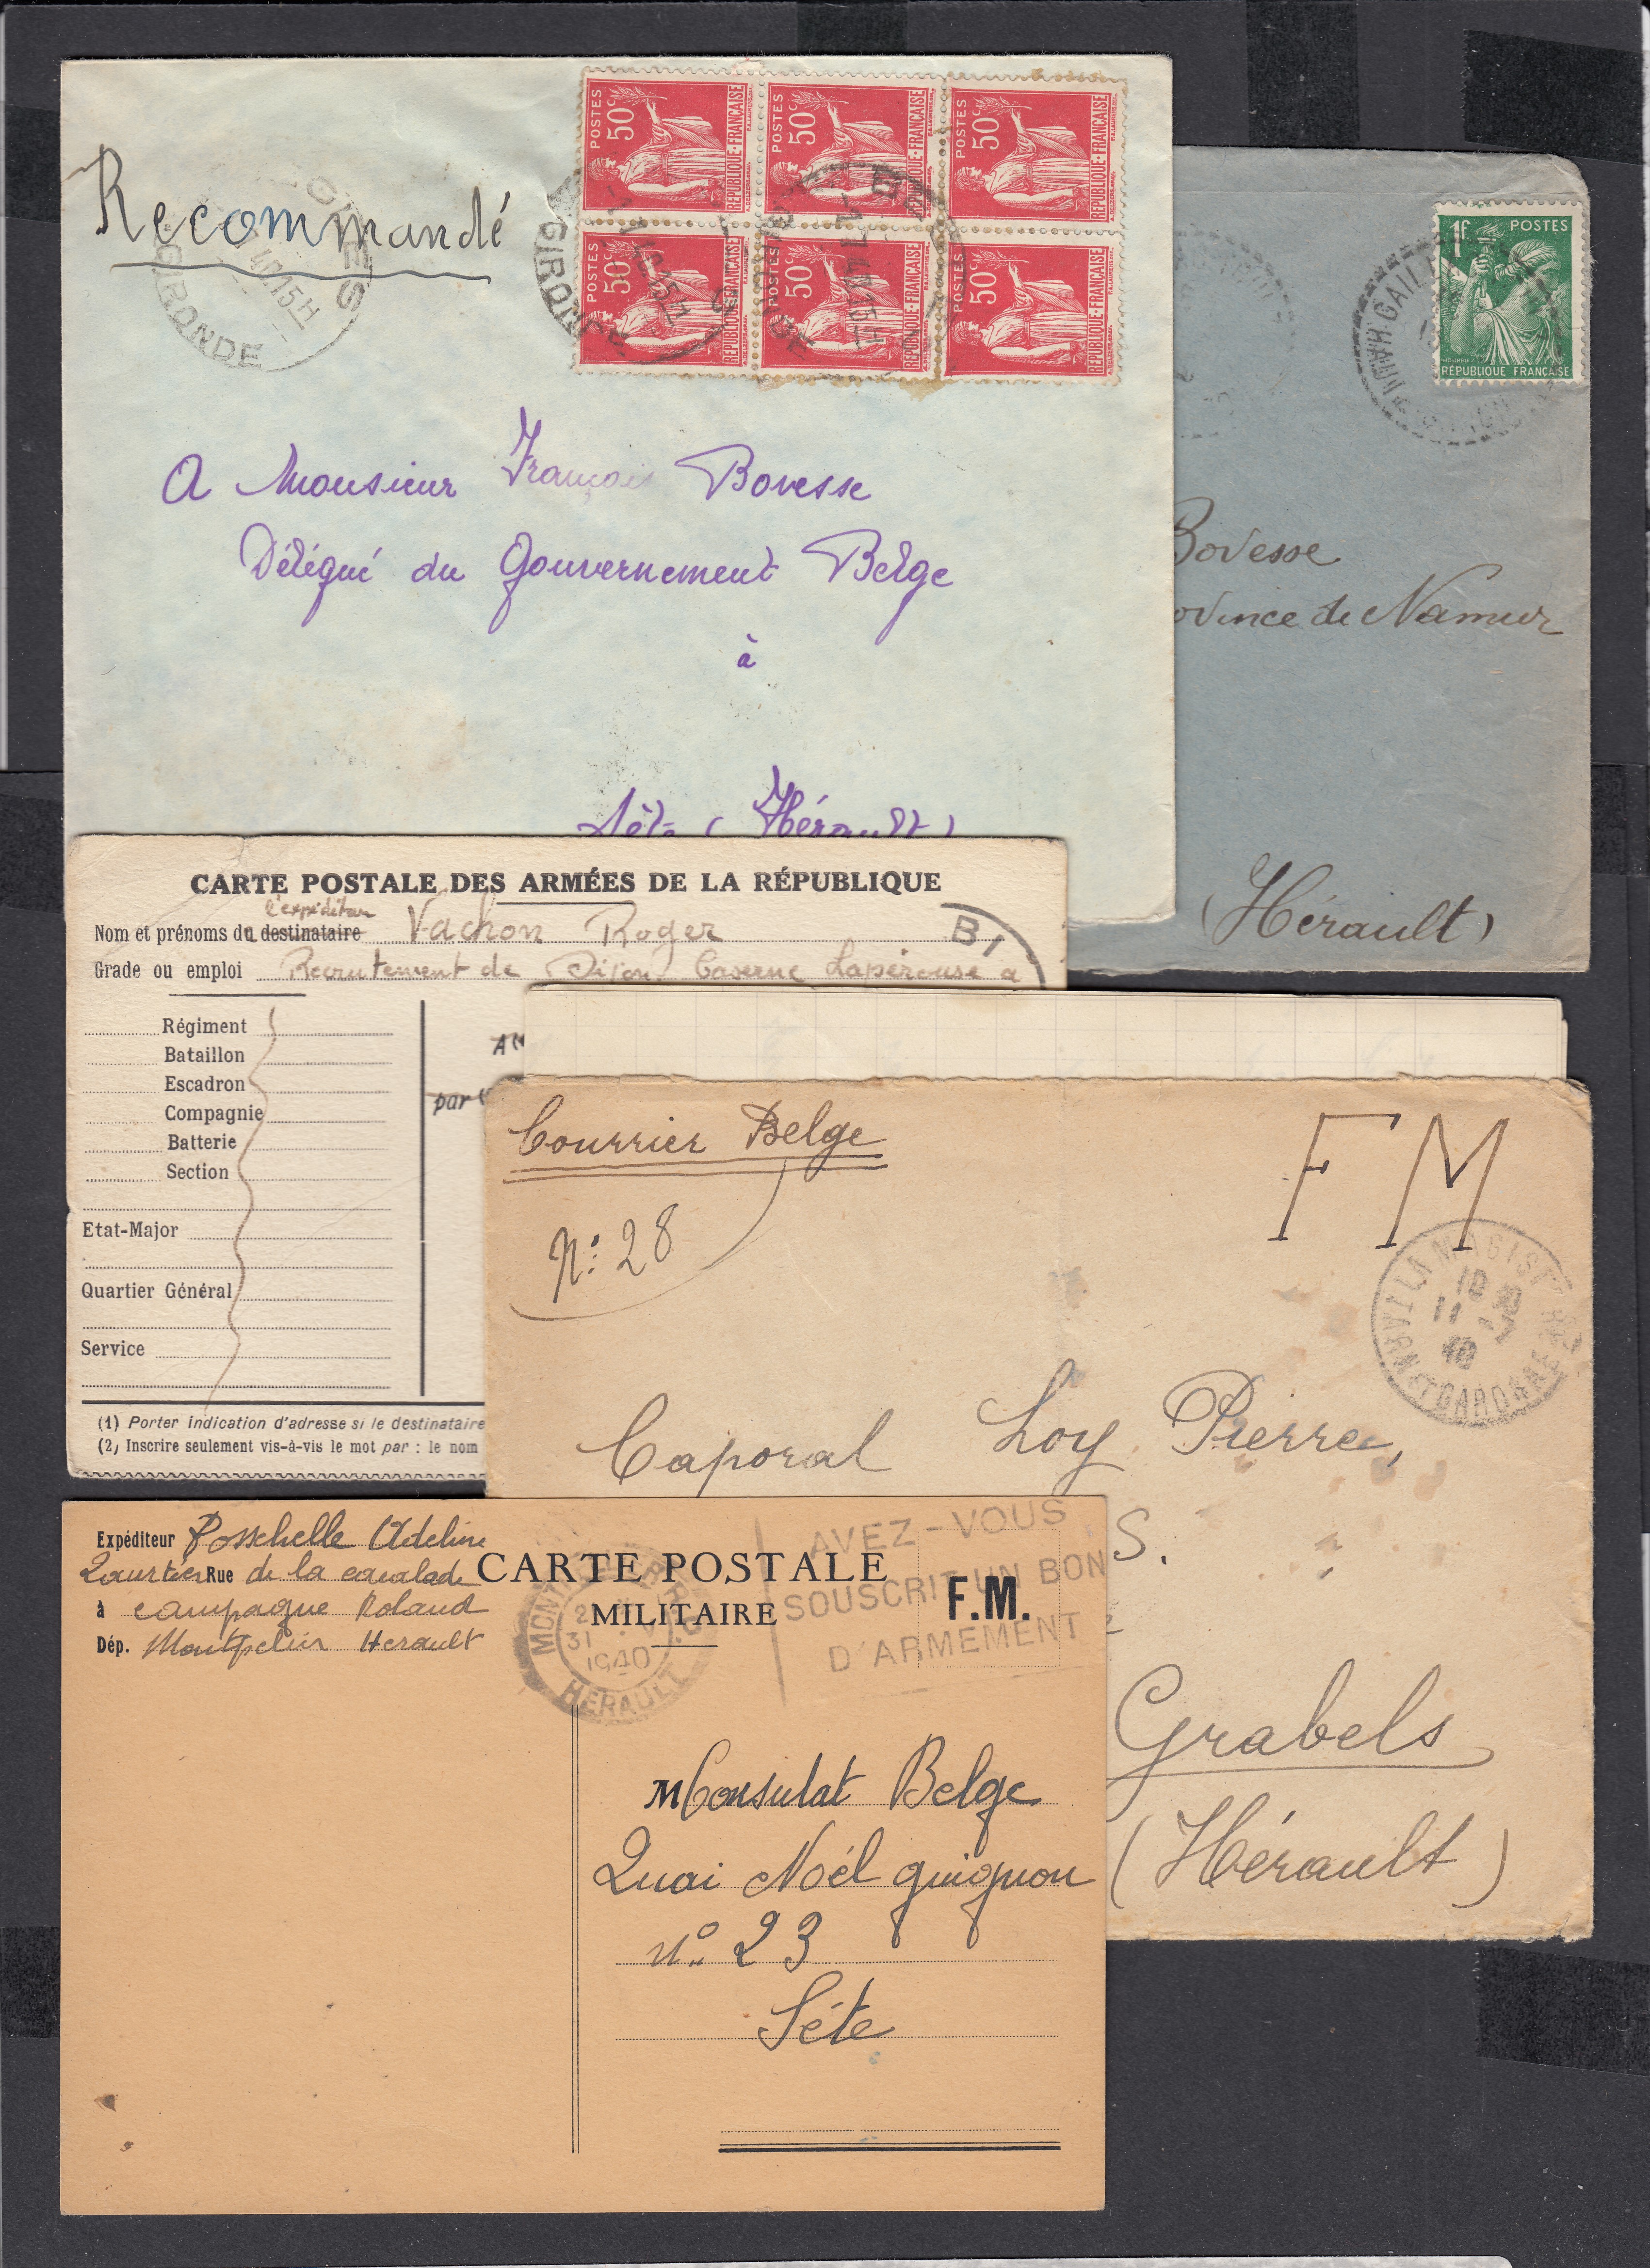 Recommandé
GIRONDE
POSTES
50c
RÉPUBLIQUE-FRANÇAISE
POSTES
50c
RÉPUBLIQUE-FRANÇAISE
POSTES
50c
RÉPUBLIQUE-FRANÇAISE
POSTES
50c
RÉPUBLIQUE-FRANÇAISE
POSTES
50c
RÉPUBLIQUE-FRANÇAISE
POSTES
50c
RÉPUBLIQUE-FRANÇAISE
GIRONDE
A Monsieur François Bovesse
Délégué du Gouvernement Belge
à
Sète (Hérault)
1F POSTES
RÉPUBLIQUE FRANÇAISE
Bovesse
ovince de Namur
(Hérault)
CARTE POSTALE DES ARMÉES DE LA RÉPUBLIQUE
l'expéditeur
Nom et prénoms du destinataire Vachon Roger
Grade ou emploi Recrutement de Dijon Caserne Lapérouse à
Régiment
Bataillon
Escadron
Compagnie
Batterie
Section
Etat-Major
Quartier Général
Service
par
(1) Porter indication d'adresse si le destinataire
(2) Inscrire seulement vis-à-vis le mot par : le nom
Courrier Belge
N: 28
F M
LAMAGISTÈRE
10 30
11 - 7
40
TARN-ET-GARONNE
Caporal Loy Pierre,
S.
Grabels
(Hérault)
Expéditeur Posschelle Adeline
Quartier Rue de la cavalade
à campagne Roland
Dép. Montpelier Herault
CARTE POSTALE
MILITAIRE
F.M.
31
1940
HERAULT
AVEZ-VOUS
SOUSCRIT UN BON
D'ARMEMENT
M Consulat Belge
Quai Noél guignon
n° 23
Séte